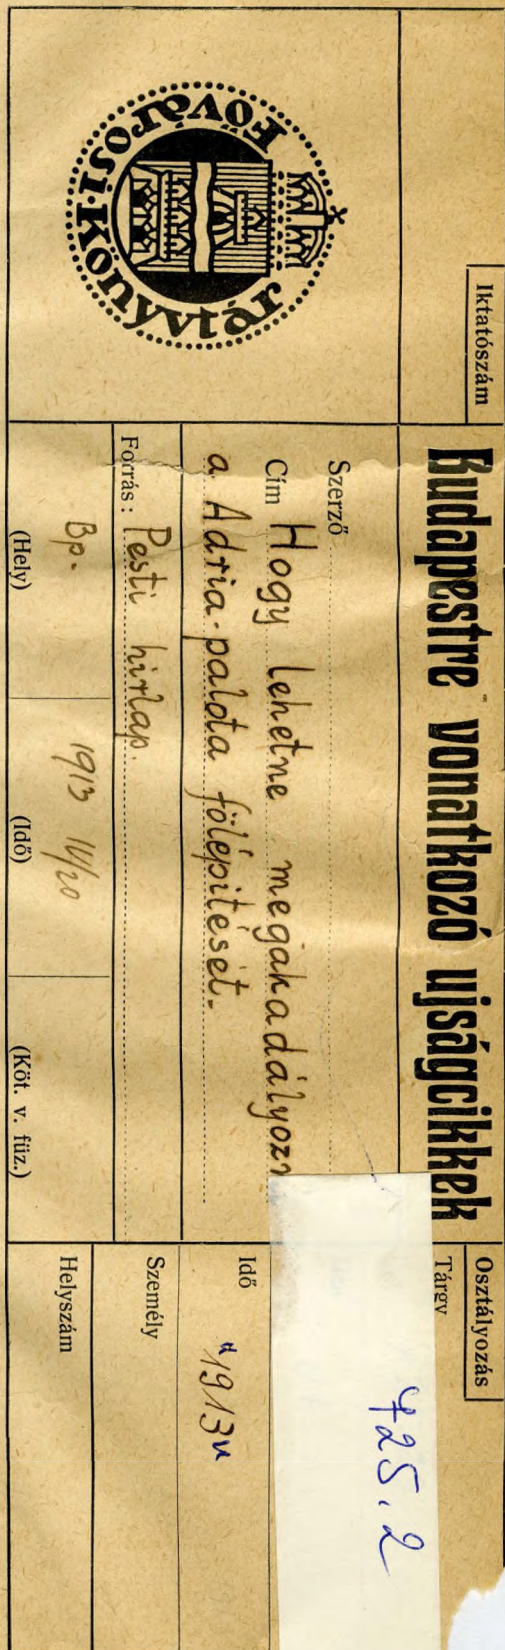 Fővárosi·Könyvtár
Iktatószám
Budapestre vonatkozó ujságcikkek
Szerző
Cím Hogy lehetne megakadályozn
a Adria-palota fölépitését.
Forrás: Pesti hirlap.
Bp. 1913 IV/20
(Hely) (Idő) (Köt. v. füz.)
Osztályozás
Tárgy
425.2
Idő "1913"
Személy
Helyszám